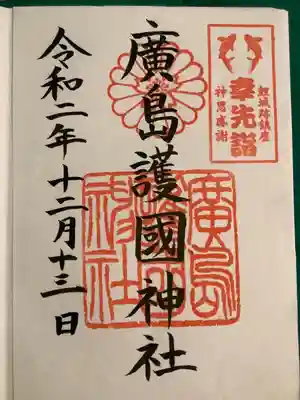 鯉城跡鎮座
幸先詣
神恩感謝
廣島護國神社
廣島
護國
神社
令和二年十二月十三日